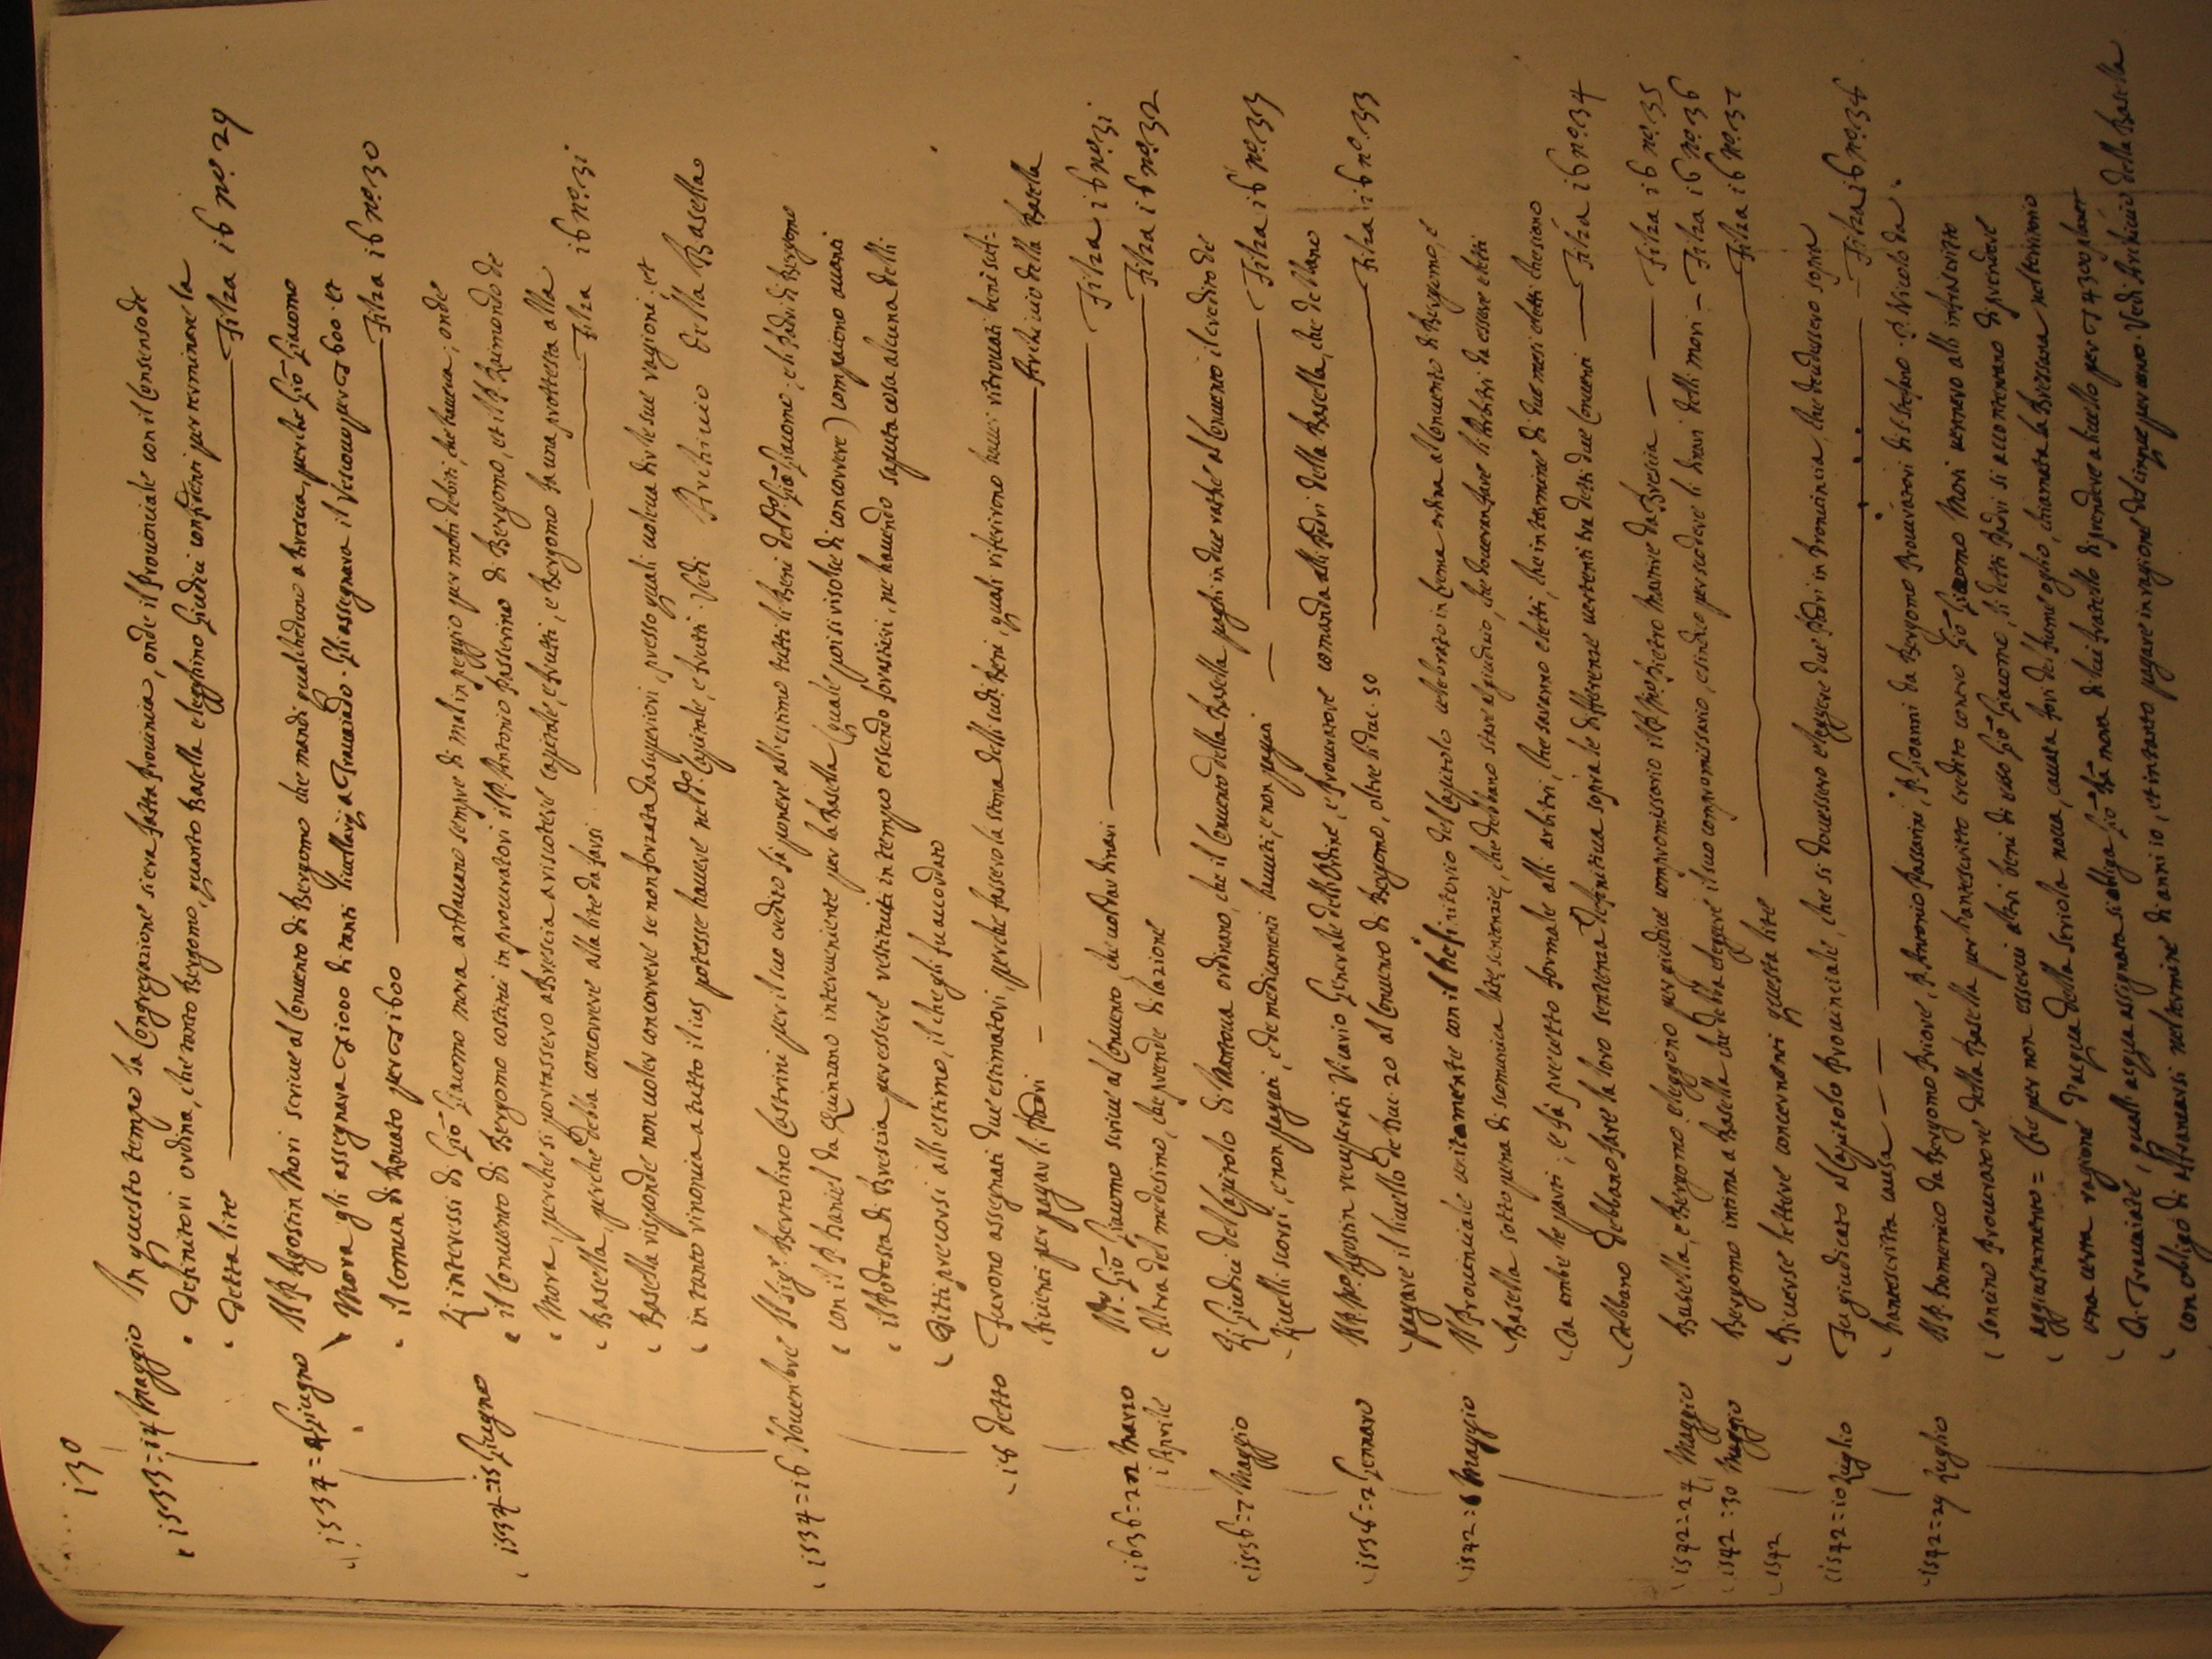 130
1533=14 Maggio In questo tempo la Congregazione si era fatta Provincia, onde il Provinciale con il Consenso de
Definitori ordina, che tanto Bergomo, quanto Basella eleghino Giudici confidenti per terminare la
detta lite Filza 16 nº. 29
1534=4 Giugno Il P. Agostin Mori scrive al Convento di Bergomo che mandi qualcheduno a Brescia, perche Gio Giacomo
Mora gli assegnava 1000 di tanti livellarij a Travaiado. Gli assegnava il Vescovo per 600. et
il Comun di Rovato per 1600 Filza 16 nº. 30
1534=15 Giugno Li interessi di Gio Giacomo mora andavano sempre di mal in peggio per molti debiti, che haveva, onde
il Convento di Bergomo costituì in procuratori il P. Antonio Passerino di Bergomo, et il P. Raimondo de
Mora, perche si portassero a Brescia a riscoter capitale, e frutti, e Bergomo fa una protesta alla
Basella, perche debba concorrere alla lite da farsi Filza 16 nº. 31
Basella risponde non voler concorrere se non forzata da superiori, presso quali voleva dir le sue ragioni et
in tanto rinoncia a tutto il ius potesse havere nel do. Capitale, e frutti. Vedi Archivio della Basella
1534=16 Novembre Il Sigr. Bertolino Castrini per il suo credito fà ponere all'estimo tutti li Beni del do. Gio Giacomo, e li Padri di Bergomo
con il P. Daniel da Quinzano interveniente per la Basella (quale poi si risolse di concorrere) compaiono avanti
il Podestà di Brescia per essere restituiti in tempo essendo forastieri, ne havendo saputa cosa alcuna delli
Ditti prencorsi all'estimo, il che gli fu accordato
18 detto Furono assegnati due estimatori, perche fassero la stima delli sudi. Beni, quali riferirono haver ritrovati beni suf-
ficienti per pagar li Padri Archivio della Basella
1636=22 Marzo Mr. Gio Giacomo scrive al Convento che vol dar dinari Filza 16 nº. 31
1 Aprile Altra del medesimo, che prende dilazione Filza 16 nº. 32
1536=7 Maggio Li Giudici del Capitolo di Mantova ordinano, che il Convento della Basella paghi in due ratte al Convento il credito de
Livelli scorsi, e non pagati, e de medicamenti havuti, e non pagati Filza 16 nº. 33
1538=2 Gennaro Il P. Agostin Vicario Generale dell'Ordine, e Procuratore comanda alli Padri della Basella, che debbano
pagare il livello de duc. 20 al Convento di Bergomo, oltre li duc. 50 Filza 16 nº. 33
1542=8 Maggio Il Provinciale unitamente con il Definitorio del Capitolo celebrato in Crema ordina al Convento di Bergomo, e
Basella sotto pena di scomunica late sententie, che debbano stare al giudicio, che doveran fare li Arbitri da essere eletti
da ambe le parti, e fà precetto formale alli arbitri, che saranno eletti, che in termine di due mesi eletti che siano
debbano debbano fare la loro sentenza definitiva sopra le differenze vertenti tra detti due Conventi Filza 16 nº. 34
1542=24 Maggio Basella, e Bergomo eleggono per giudice compromissorio il P. Pietro Martire da Brescia Filza 16 nº. 35
1542=30 Maggio Bergomo intima a Basella che debba eleggere il suo compromissario, e sindico per scodere li dinari delli mori Filza 16 nº. 36
1542 Diverse lettere concernenti questa lite Filza 16 nº. 37
1542=10 Luglio Fu giudicato al Capitolo Provinciale, che si dovessero eleggere due Padri in Provincia, che decidessero sopra
l'antescritta causa Filza 16 nº. 38
1542=29 Luglio Il P. Domenico da Bergomo Priore, P. Antonio Passarini, P. Gioanni da Bergomo Procuratori di S. Stefano. P. Nicolo da
Soncino Procuratore della Basella per l'antescritto credito contro Gio Giacomo Mori vennero all'infrascritto
aggiustamento = Che per non esservi altri beni di esso Gio Giacomo, li detti Padri si accontentano di prendere
una certa ragione d'acqua della Seriola nova, cavata fori del fiume oglio, chiamata la Bressana nel territorio
di Travaiate, quali acqua assignata si obliga Gio Ba mora di lui fratello di prendere a livello per 4300 planet
con obligo di affrancarsi nel termine di anni 10, et in tanto pagare in ragione del cinque per cento. Vedi Archivio della Basella